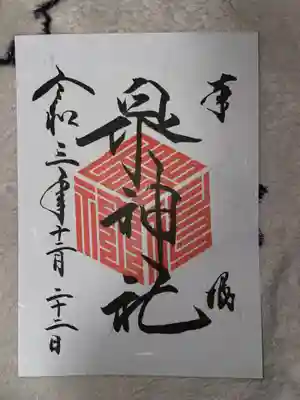 奉拝
泉神社
令和三年十二月二十二日